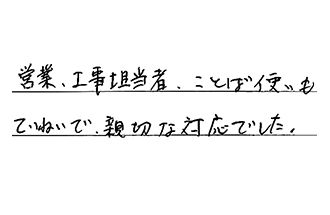 営業、工事担当者、ことば使いも
ていねいで、親切な対応でした。